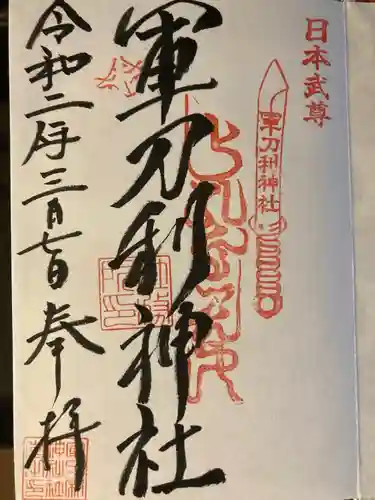 日本武尊
軍刀利神社
軍刀利神社
令和二年三月七日 奉拝